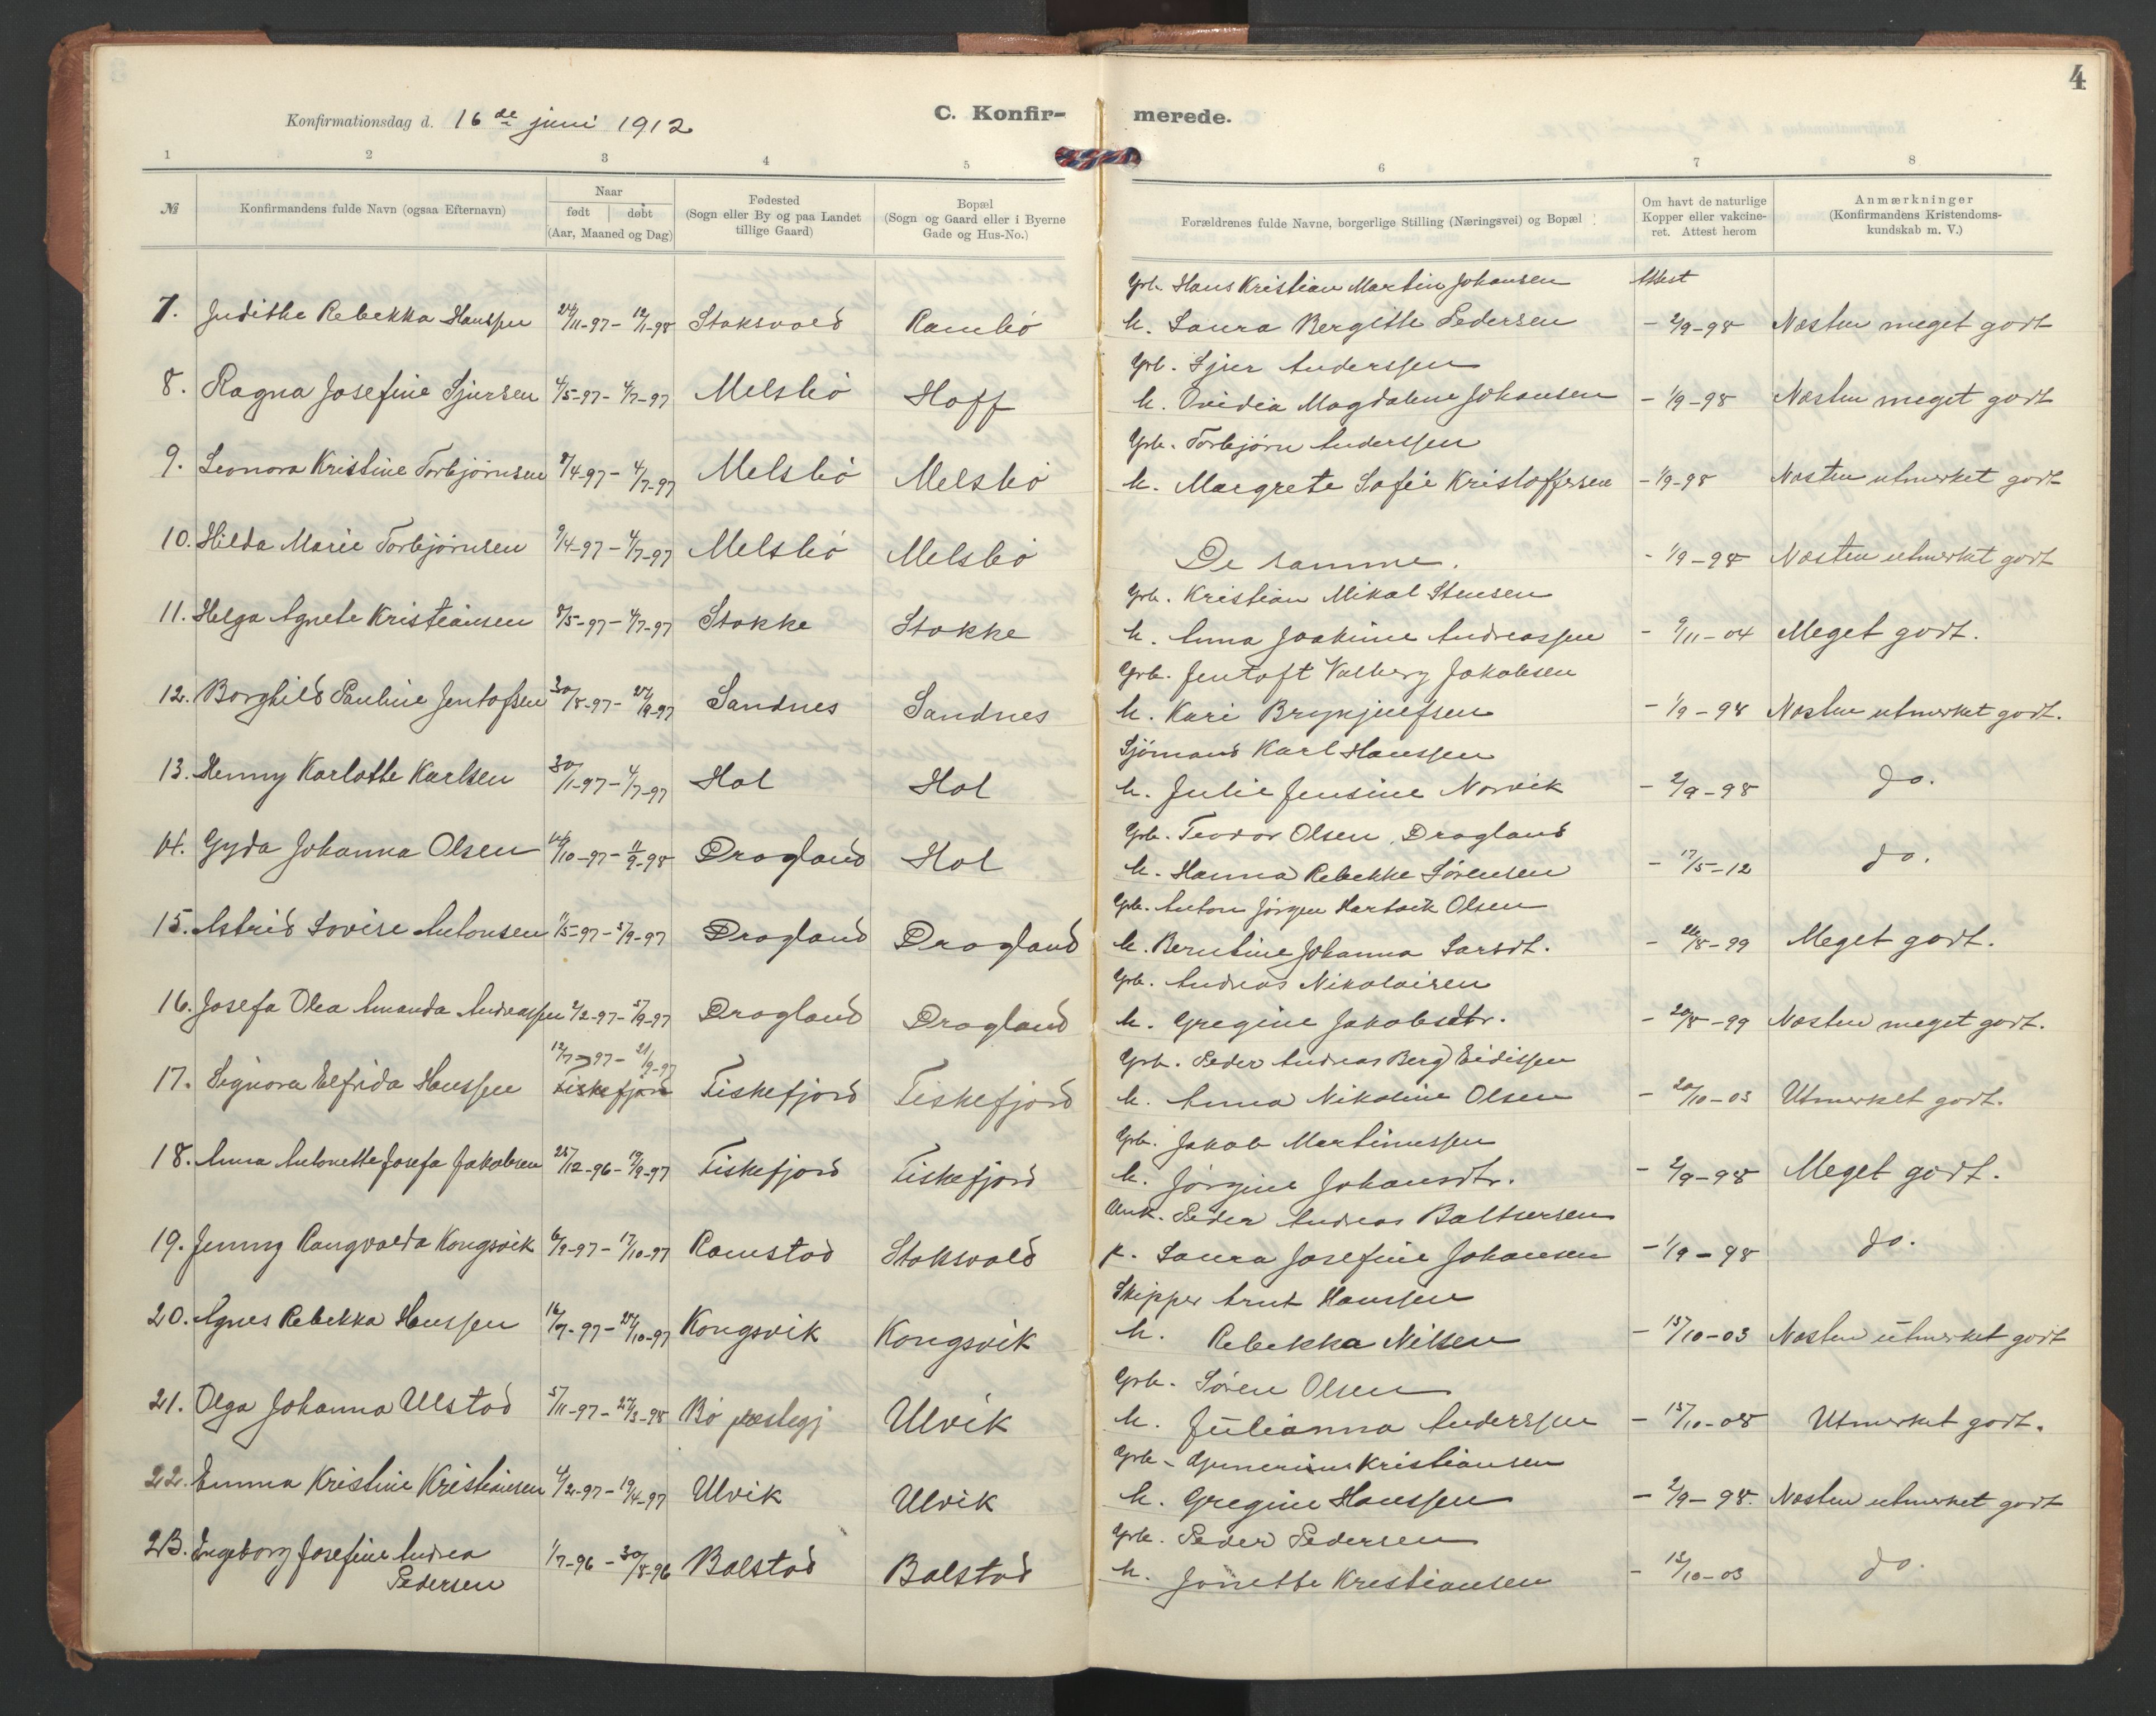 4
Konfirmationsdag d. 16de juni 1912
C. Konfir-
merede.
1 2 3 4 5 6 7 8
№
Konfirmandens fulde Navn (ogsaa Efternavn)
Naar
født | døbt
(Aar, Maaned og Dag)
Fødested
(Sogn eller By og paa Landet
tillige Gaard)
Bopæl
(Sogn og Gaard eller i Byerne
Gade og Hus-No.)
Forældrenes fulde Navne, borgerlige Stilling (Næringsvei) og Bopæl
Om havt de naturlige
Kopper eller vakcine-
ret. Attest herom
Anmærkninger
(Konfirmandens Kristendoms-
kundskab m. V.)
Grb. Hans Kristian Martin Johansen Attest
7. Judithe Rebekka Hanssen 24/11-97 - 12/1-98 Stoksvold Rambö h. Laura Bergitte Pedersen - 2/9-98 Næsten meget godt
Grb. Sjur Anderssen
8. Ragna Josefine Sjursen 4/5-97 - 4/7-97 Melsbö Hoff h. Ovidia Magdalene Johansen - 1/9-98 Næsten meget godt
Grb. Torbjørn Anderssen
9. Leonora Kristine Torbjørnsen 9/4-97 - 4/7-97 Melsbö Melsbö h. Margrete Sofie Kristoffersen - 1/9-98 Næsten utmerket godt
10. Hilda Marie Torbjørnsen 9/4-97 - 4/7-97 Melsbö Melsbö De samme. - 1/9-98 Næsten utmerket godt
Grb. Kristian Mikal Stensen
11. Helga Agnete Kristiansen 8/5-97 - 4/7-97 Stokke Stokke h. Anna Joakime Andreassen - 9/11-04 Meget godt.
Grb. Jentoft Valberg Jakobsen
12. Borghild Pauline Jentoftsen 30/8-97 - 24/9-97 Sandnes Sandnes h. Kari Brynjulfsen - 1/9-98 Næsten utmerket godt.
Sjömand Karl Hanssen
13. Henny Karlotte Karlsen 30/1-97 - 4/7-97 Hol Hol h. Julie Jensine Norvik - 2/9-98 do.
Grb. Teodor Olsen, Dragland
14. Gyda Johanna Olsen 14/10-97 - 11/9-98 Dragland Hol h. Hanna Rebekke Sørensen - 17/5-12 do.
Grb. Anton Jörgen Hartvik Olsen
15. Astrid Lovise Antonsen 11/5-97 - 5/9-97 Dragland Dragland h. Berntine Johanna Larsdt. - 26/8-99 Meget godt.
Grb. Andreas Nikolaisen
16. Josefa Olea Amanda Andreassen 2/2-97 - 5/9-97 Dragland Dragland h. Gregine Jakobsdtr. - 20/8-99 Næsten meget godt.
12/7-97 - 21/9-97 Grb. Peder Andreas (Berg) Eidissen
17. Signora Elfrida Hanssen Fiskefjord Fiskefjord Fiskefjord h. Anna Nikoline Olsen - 20/10-03 Utmerket godt.
Grb. Jakob Martinussen
18. Anna Antonette Josefa Jakobsen 25/12-96 - 19/9-97 Fiskefjord Fiskefjord h. Jörgine Johansdtr. - 2/9-98 Meget godt.
Peder Andreas Baltsersen
19. Jenny Rangvalda Kongsvik 6/9-97 - 17/10-97 Ramstad Stoksvold p. Laura Josefine Johansen - 1/9-98 do.
Skipper Arnt Hanssen
20. Agnes Rebekka Hanssen 16/7-97 - 24/10-97 Kongsvik Kongsvik h. Rebekka Nilsen - 15/10-03 Næsten utmerket godt
Grb. Sören Olsen
21. Olga Johanna Ulstad 5/11-97 - 27/3-98 Bö prestegj Ulvik h. Julianna Anderssen - 15/10-08 Utmerket godt.
Grb. Gunerius Kristiansen
22. Emma Kristine Kristiansen 4/2-97 - 19/4-97 Ulvik Ulvik h. Gregine Hanssen - 2/9-98. Næsten utmerket godt
Grb. Peder Pedersen
23. Ingeborg Josefine Andrea
Pedersen 1/7-96 - 30/8-96 Balstad Balstad h. Jonette Kristiansen - 12/10-03 do.